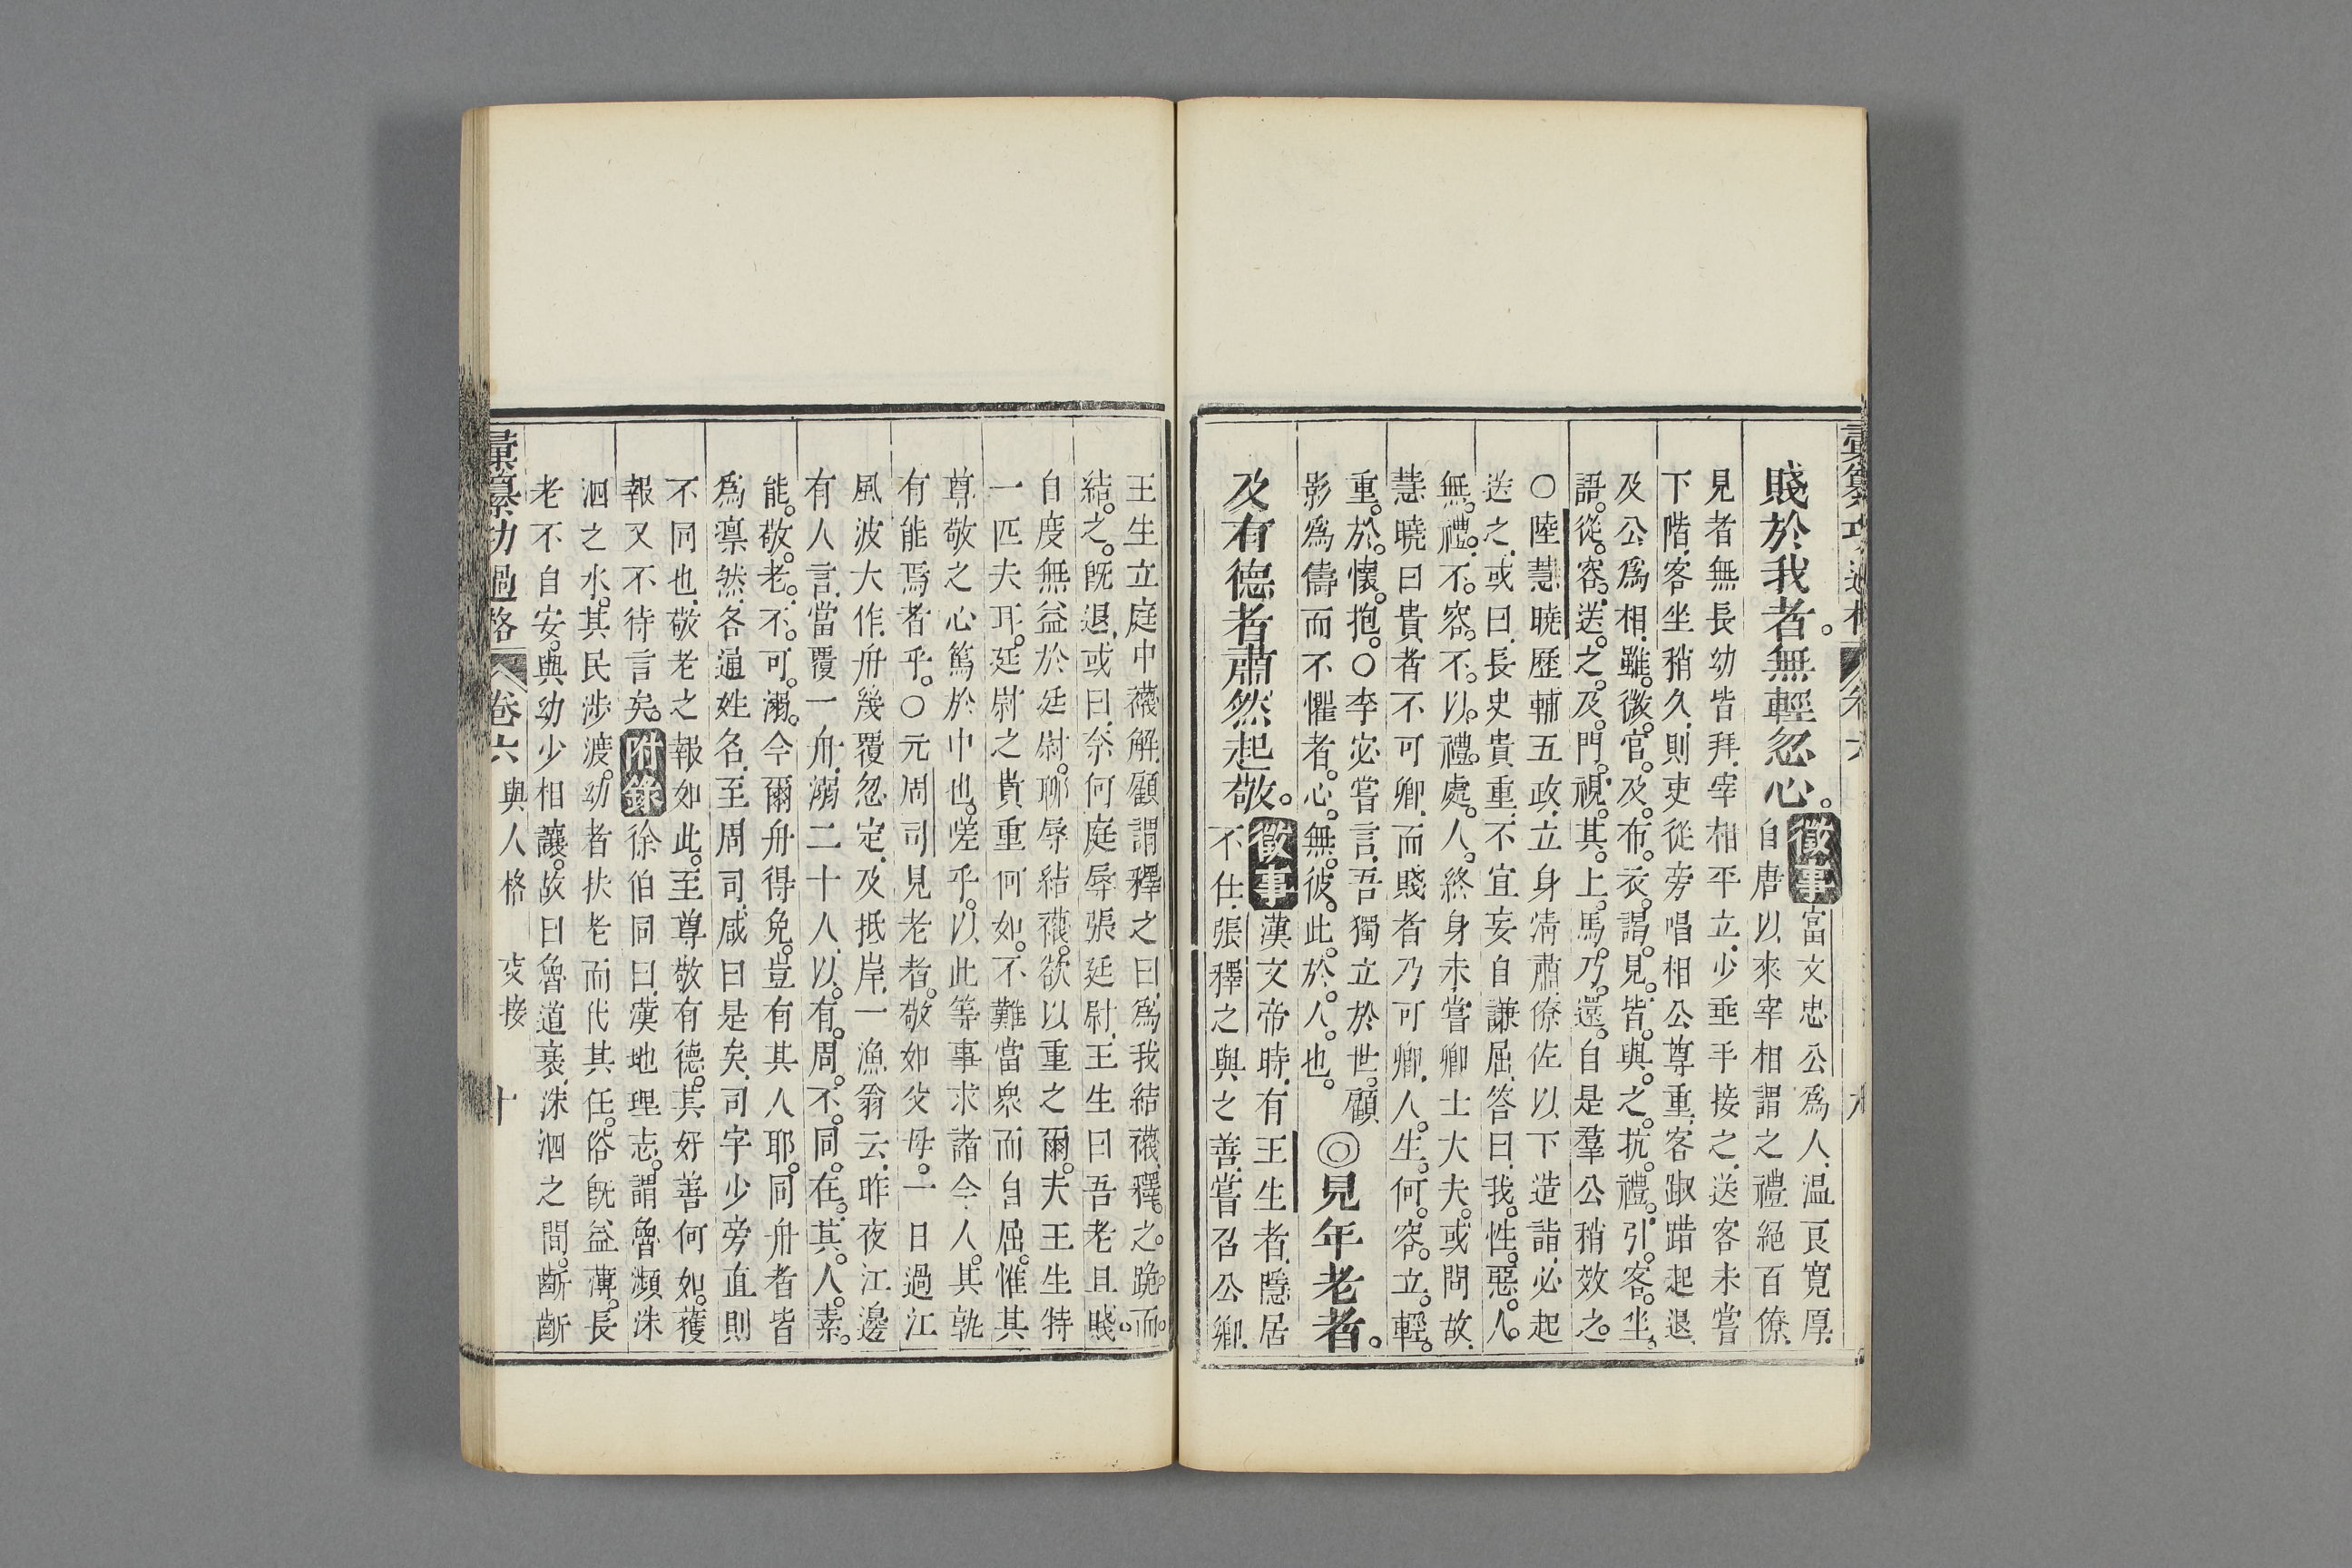 彙纂功過格 卷六
賤於我者。無輕忽心。徵事富文忠公爲人。温良寬厚。
自唐以來宰相謂之禮絕百僚。
見者無長幼皆拜。宰相平立。少垂手接之。送客未嘗
下階。客坐稍久。則吏從旁唱相公尊重。客踧踖起退。
及公爲相。雖微官及布衣謁見。皆與之抗禮。引客坐。
語。從容送之及門。視其上馬。乃還。自是羣公稍效之。
○陸慧曉歷輔五政。立身清肅。僚佐以下造詣。必起
送之。或曰。長史貴重。不宜妄自謙屈。答曰。我性惡人
無禮。不容不以禮處人。終身未嘗卿士大夫。或問故。
慧曉曰貴者不可卿。而賤者乃可卿。人生何容立輕
重於懷抱。○李宓嘗言。吾獨立於世。顧
影爲儔而不懼者。心無彼此於人也。
◎見年老者。
及有德者肅然起敬。徵事漢文帝時。有王生者。隱居
不仕。張釋之與之善。嘗召公卿。
王生立庭中襪解。顧謂釋之曰。爲我結襪。釋之跪而
結之。旣退。或曰。奈何庭辱張廷尉。王生曰吾老且賤。
自度無益於廷尉。聊辱結襪。欲以重之爾。夫王生特
一匹夫耳。廷尉之貴重何如。不難當衆而自屈。惟其
尊敬之心篤於中也。嗟乎。以此等事求諸今人。其孰
有能焉者乎。○元周司見老者。敬如父母。一日過江
風波大作。舟幾覆忽定。及抵岸。一漁翁云。昨夜江邊
有人言。當覆一舟。溺二十八。以有周不同在。其人素
能敬老。不可溺。今爾舟得免。豈有其人耶。同舟者皆
爲凛然。各通姓名。至周司。咸曰是矣。司字少旁直則
不同也。敬老之報如此。至尊敬有德。其好善何如。獲
報又不待言矣。附錄徐伯同曰。漢地理志。謂魯瀕洙
泗之水。其民涉渡。幼者扶老而代其任。俗旣益薄。長
老不自安。與幼少相讓。故曰魯道衰。洙泗之間。齗齗
彙纂功過格 卷六 與人格 交接 十